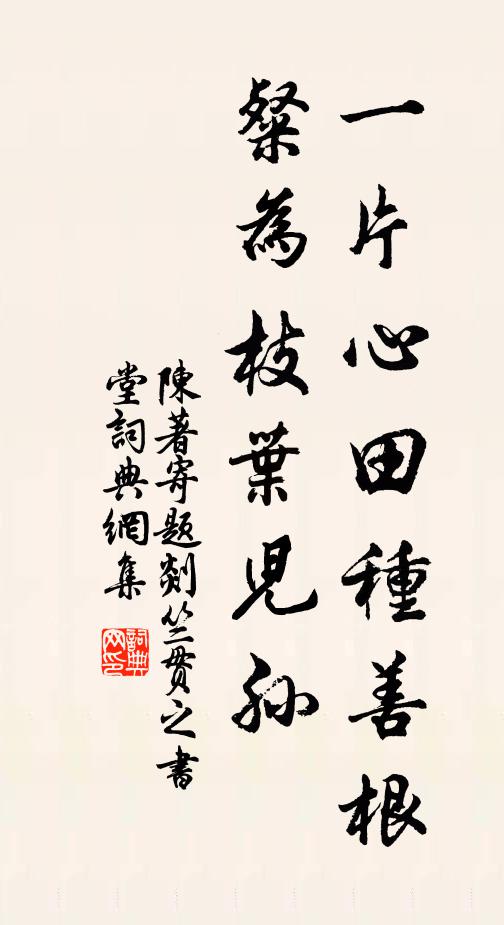 一片心田種善根
粲為枝葉兒孫
陳著寄題剡竺貫之書
堂詞典網集
詞典网印